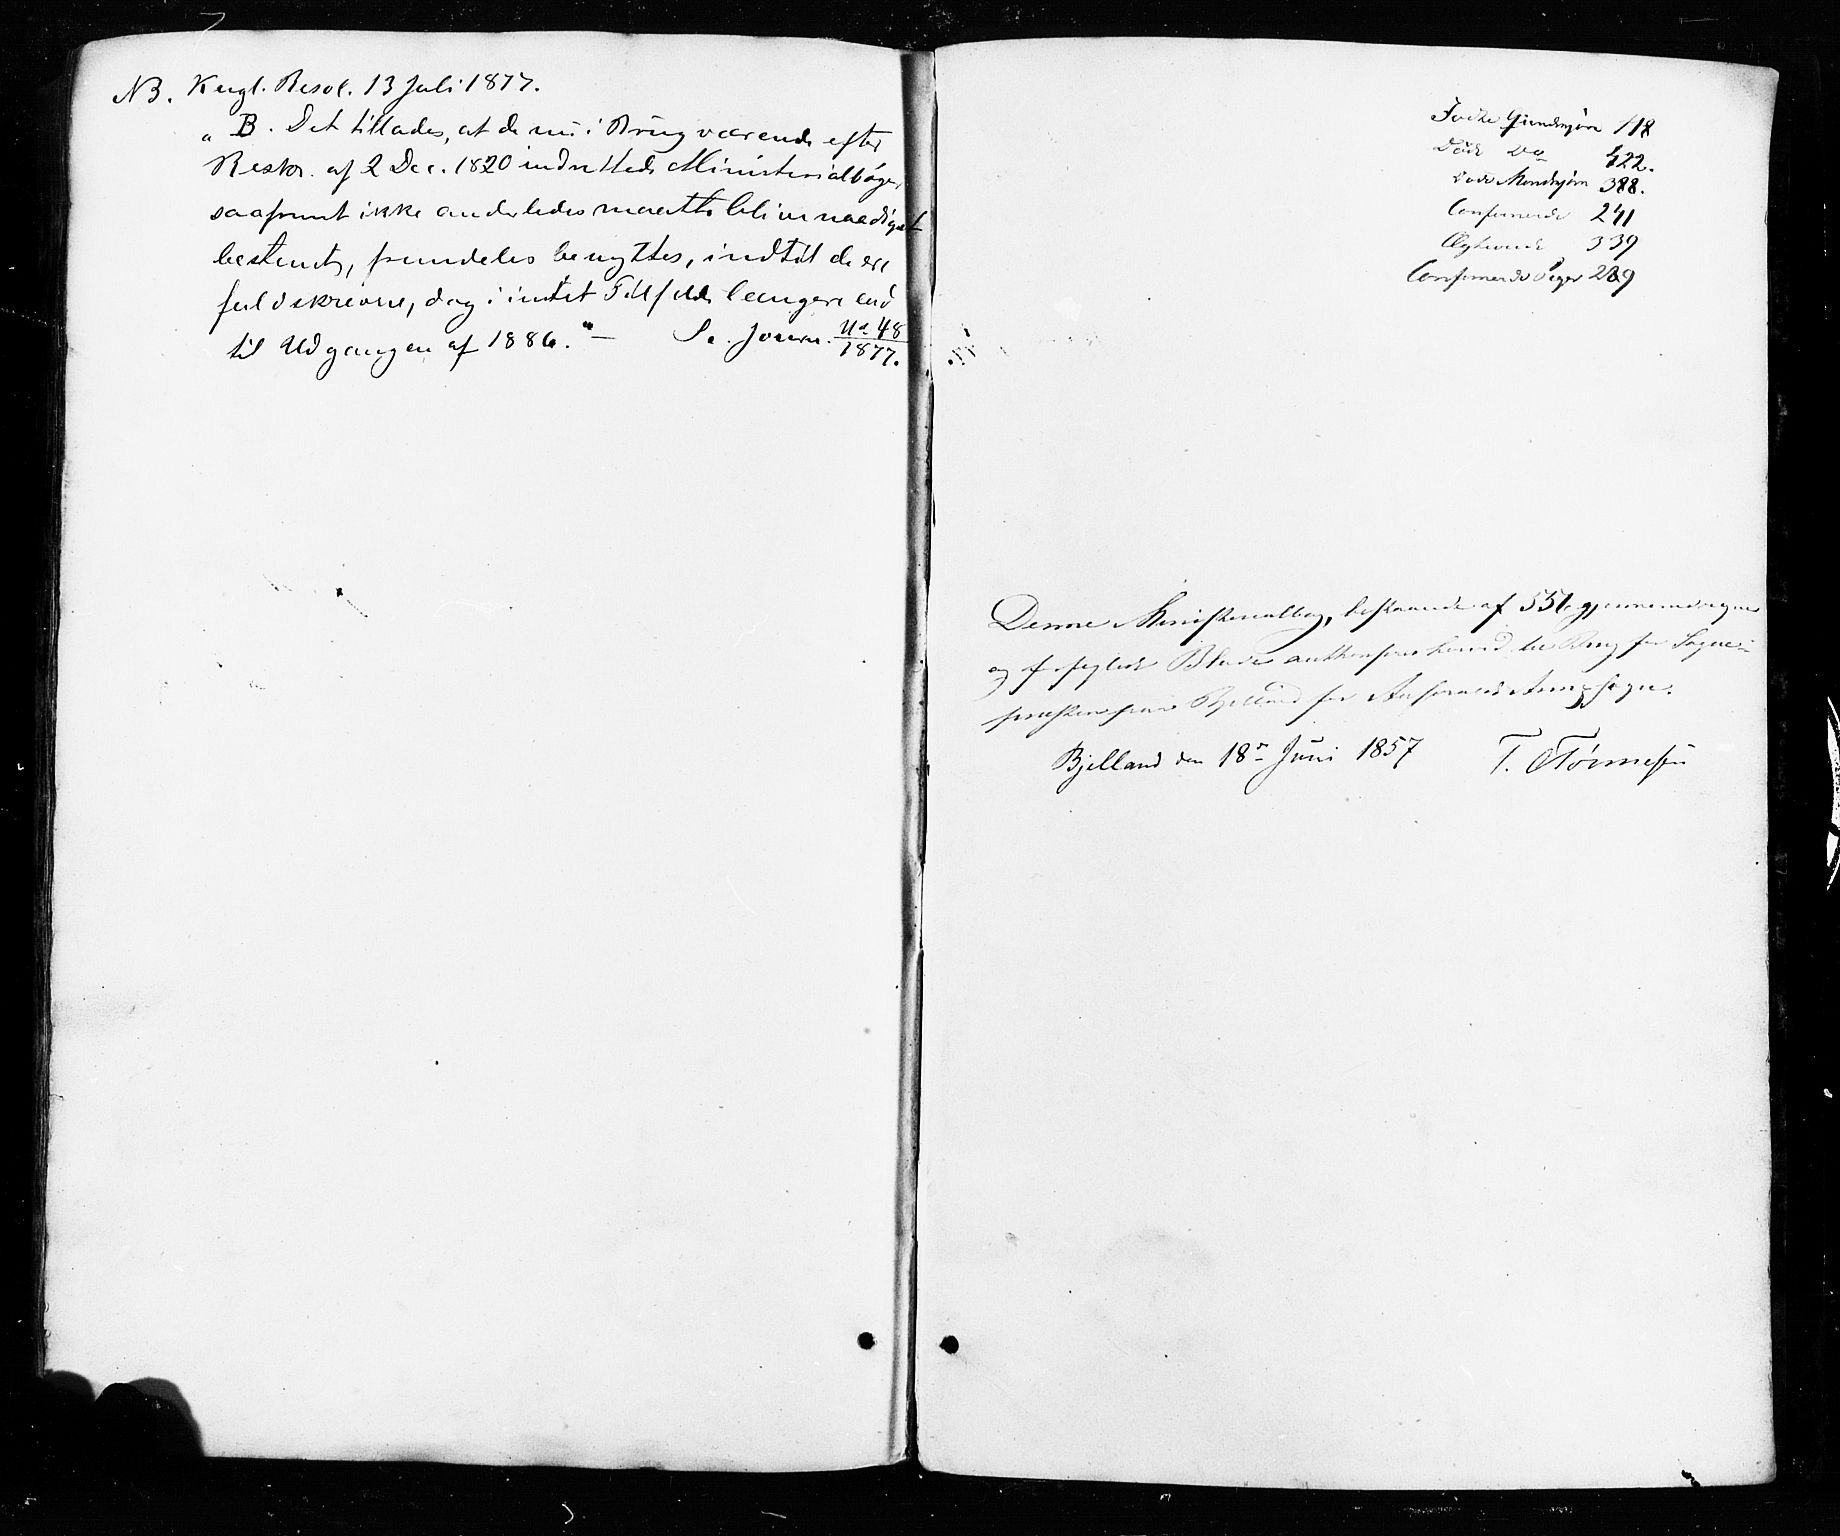 NB. Kngl. Resol. 13 Juli 1877.
„B. Det tillades, at de nu i Brug værende efter
Reskr. af 2 Dec. 1820 indrettede Ministerialbøger
saafremt ikke anderledes maatte blive naadigst
bestemt, fremdeles benyttes, indtil de ere
fuldskrevne, dog i intet Tilfælde længere end
til Udgangen af 1886.“ — Se Journ. No 48
1877.
Fødte Qvindekjøn 118
Døde Do 422.
Døde Mandkjøn 388.
Confirmerede 241
Ægteviede 339
Confirmerede Piger 289
Denne Ministerialbog, bestaaende af 551 gjennemdragne
og forseglede Blade authoriseres herved til Brug for Sogne-
præsten paa Bjelland for Aaserals Annexsogn.
Bjelland den 18de Juni 1857 T. Tønnesen